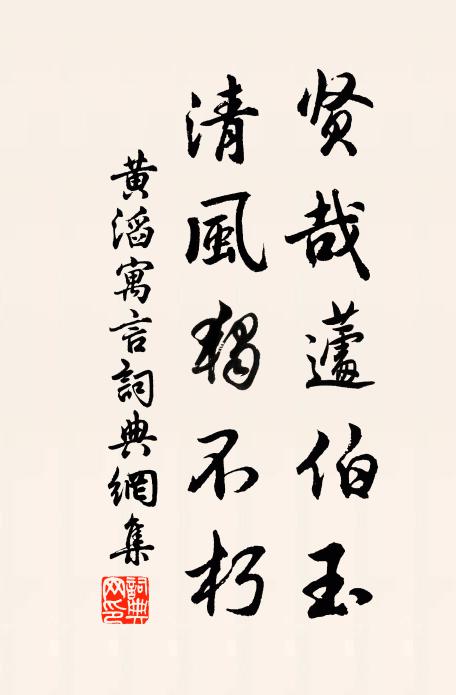 贤哉蘧伯玉
清風独不朽
黄滔寓言詞典網集
詞典网印